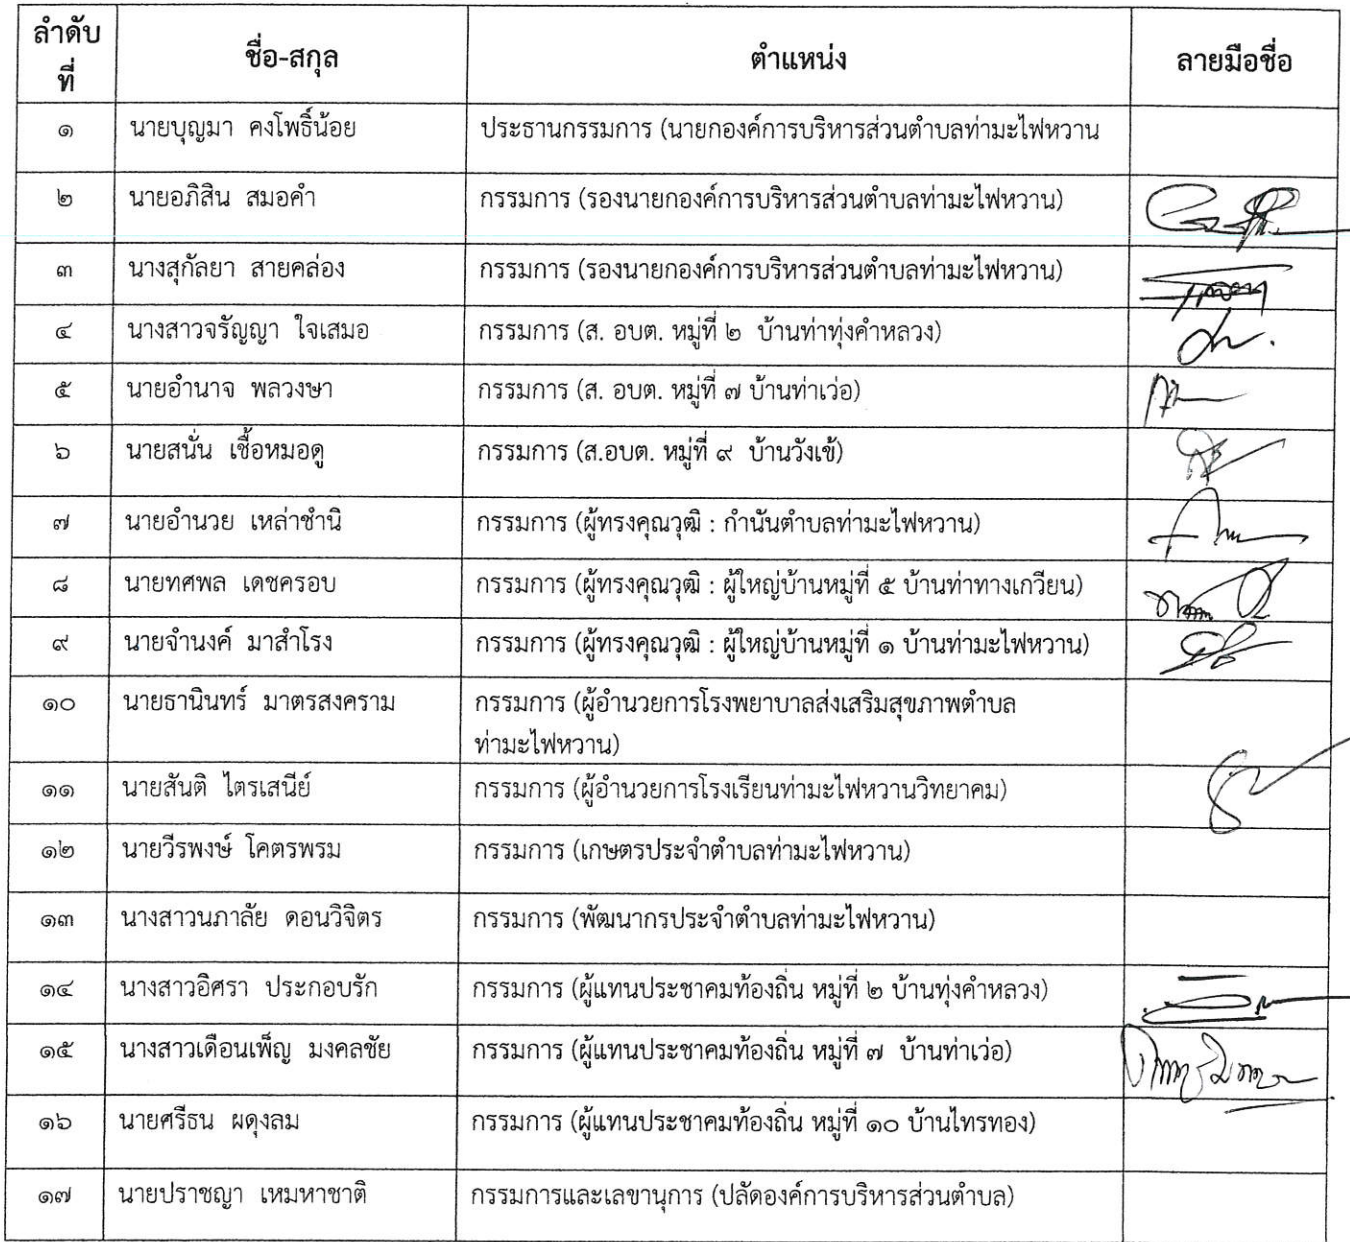 ลำดับ
ที่
ชื่อ-สกุล
ตำแหน่ง
ลายมือชื่อ
๑ นายบุญมา คงโพธิ์น้อย ประธานกรรมการ (นายกองค์การบริหารส่วนตำบลท่ามะไฟหวาน
๒ นายอภิสิน สมอคำ กรรมการ (รองนายกองค์การบริหารส่วนตำบลท่ามะไฟหวาน)
๓ นางสุกัลยา สายคล่อง กรรมการ (รองนายกองค์การบริหารส่วนตำบลท่ามะไฟหวาน)
๔ นางสาวจรัญญา ใจเสมอ กรรมการ (ส. อบต. หมู่ที่ ๒ บ้านท่าทุ่งคำหลวง)
๕ นายอำนาจ พลวงษา กรรมการ (ส. อบต. หมู่ที่ ๗ บ้านท่าเว่อ)
๖ นายสนั่น เชื้อหมอดู กรรมการ (ส.อบต. หมู่ที่ ๙ บ้านวังเข้)
๗ นายอำนวย เหล่าชำนิ กรรมการ (ผู้ทรงคุณวุฒิ : กำนันตำบลท่ามะไฟหวาน)
๘ นายทศพล เดชครอบ กรรมการ (ผู้ทรงคุณวุฒิ : ผู้ใหญ่บ้านหมู่ที่ ๕ บ้านท่าทางเกวียน)
๙ นายจำนงค์ มาสำโรง กรรมการ (ผู้ทรงคุณวุฒิ : ผู้ใหญ่บ้านหมู่ที่ ๑ บ้านท่ามะไฟหวาน)
๑๐ นายธานินทร์ มาตรสงคราม กรรมการ (ผู้อำนวยการโรงพยาบาลส่งเสริมสุขภาพตำบล
ท่ามะไฟหวาน)
๑๑ นายสันติ ไตรเสนีย์ กรรมการ (ผู้อำนวยการโรงเรียนท่ามะไฟหวานวิทยาคม)
๑๒ นายวีรพงษ์ โคตรพรม กรรมการ (เกษตรประจำตำบลท่ามะไฟหวาน)
๑๓ นางสาวนภาลัย ดอนวิจิตร กรรมการ (พัฒนากรประจำตำบลท่ามะไฟหวาน)
๑๔ นางสาวอิศรา ประกอบรัก กรรมการ (ผู้แทนประชาคมท้องถิ่น หมู่ที่ ๒ บ้านทุ่งคำหลวง)
๑๕ นางสาวเดือนเพ็ญ มงคลชัย กรรมการ (ผู้แทนประชาคมท้องถิ่น หมู่ที่ ๗ บ้านท่าเว่อ)
๑๖ นายศรีธน ผดุงลม กรรมการ (ผู้แทนประชาคมท้องถิ่น หมู่ที่ ๑๐ บ้านไทรทอง)
๑๗ นายปราชญา เหมหาชาติ กรรมการและเลขานุการ (ปลัดองค์การบริหารส่วนตำบล)